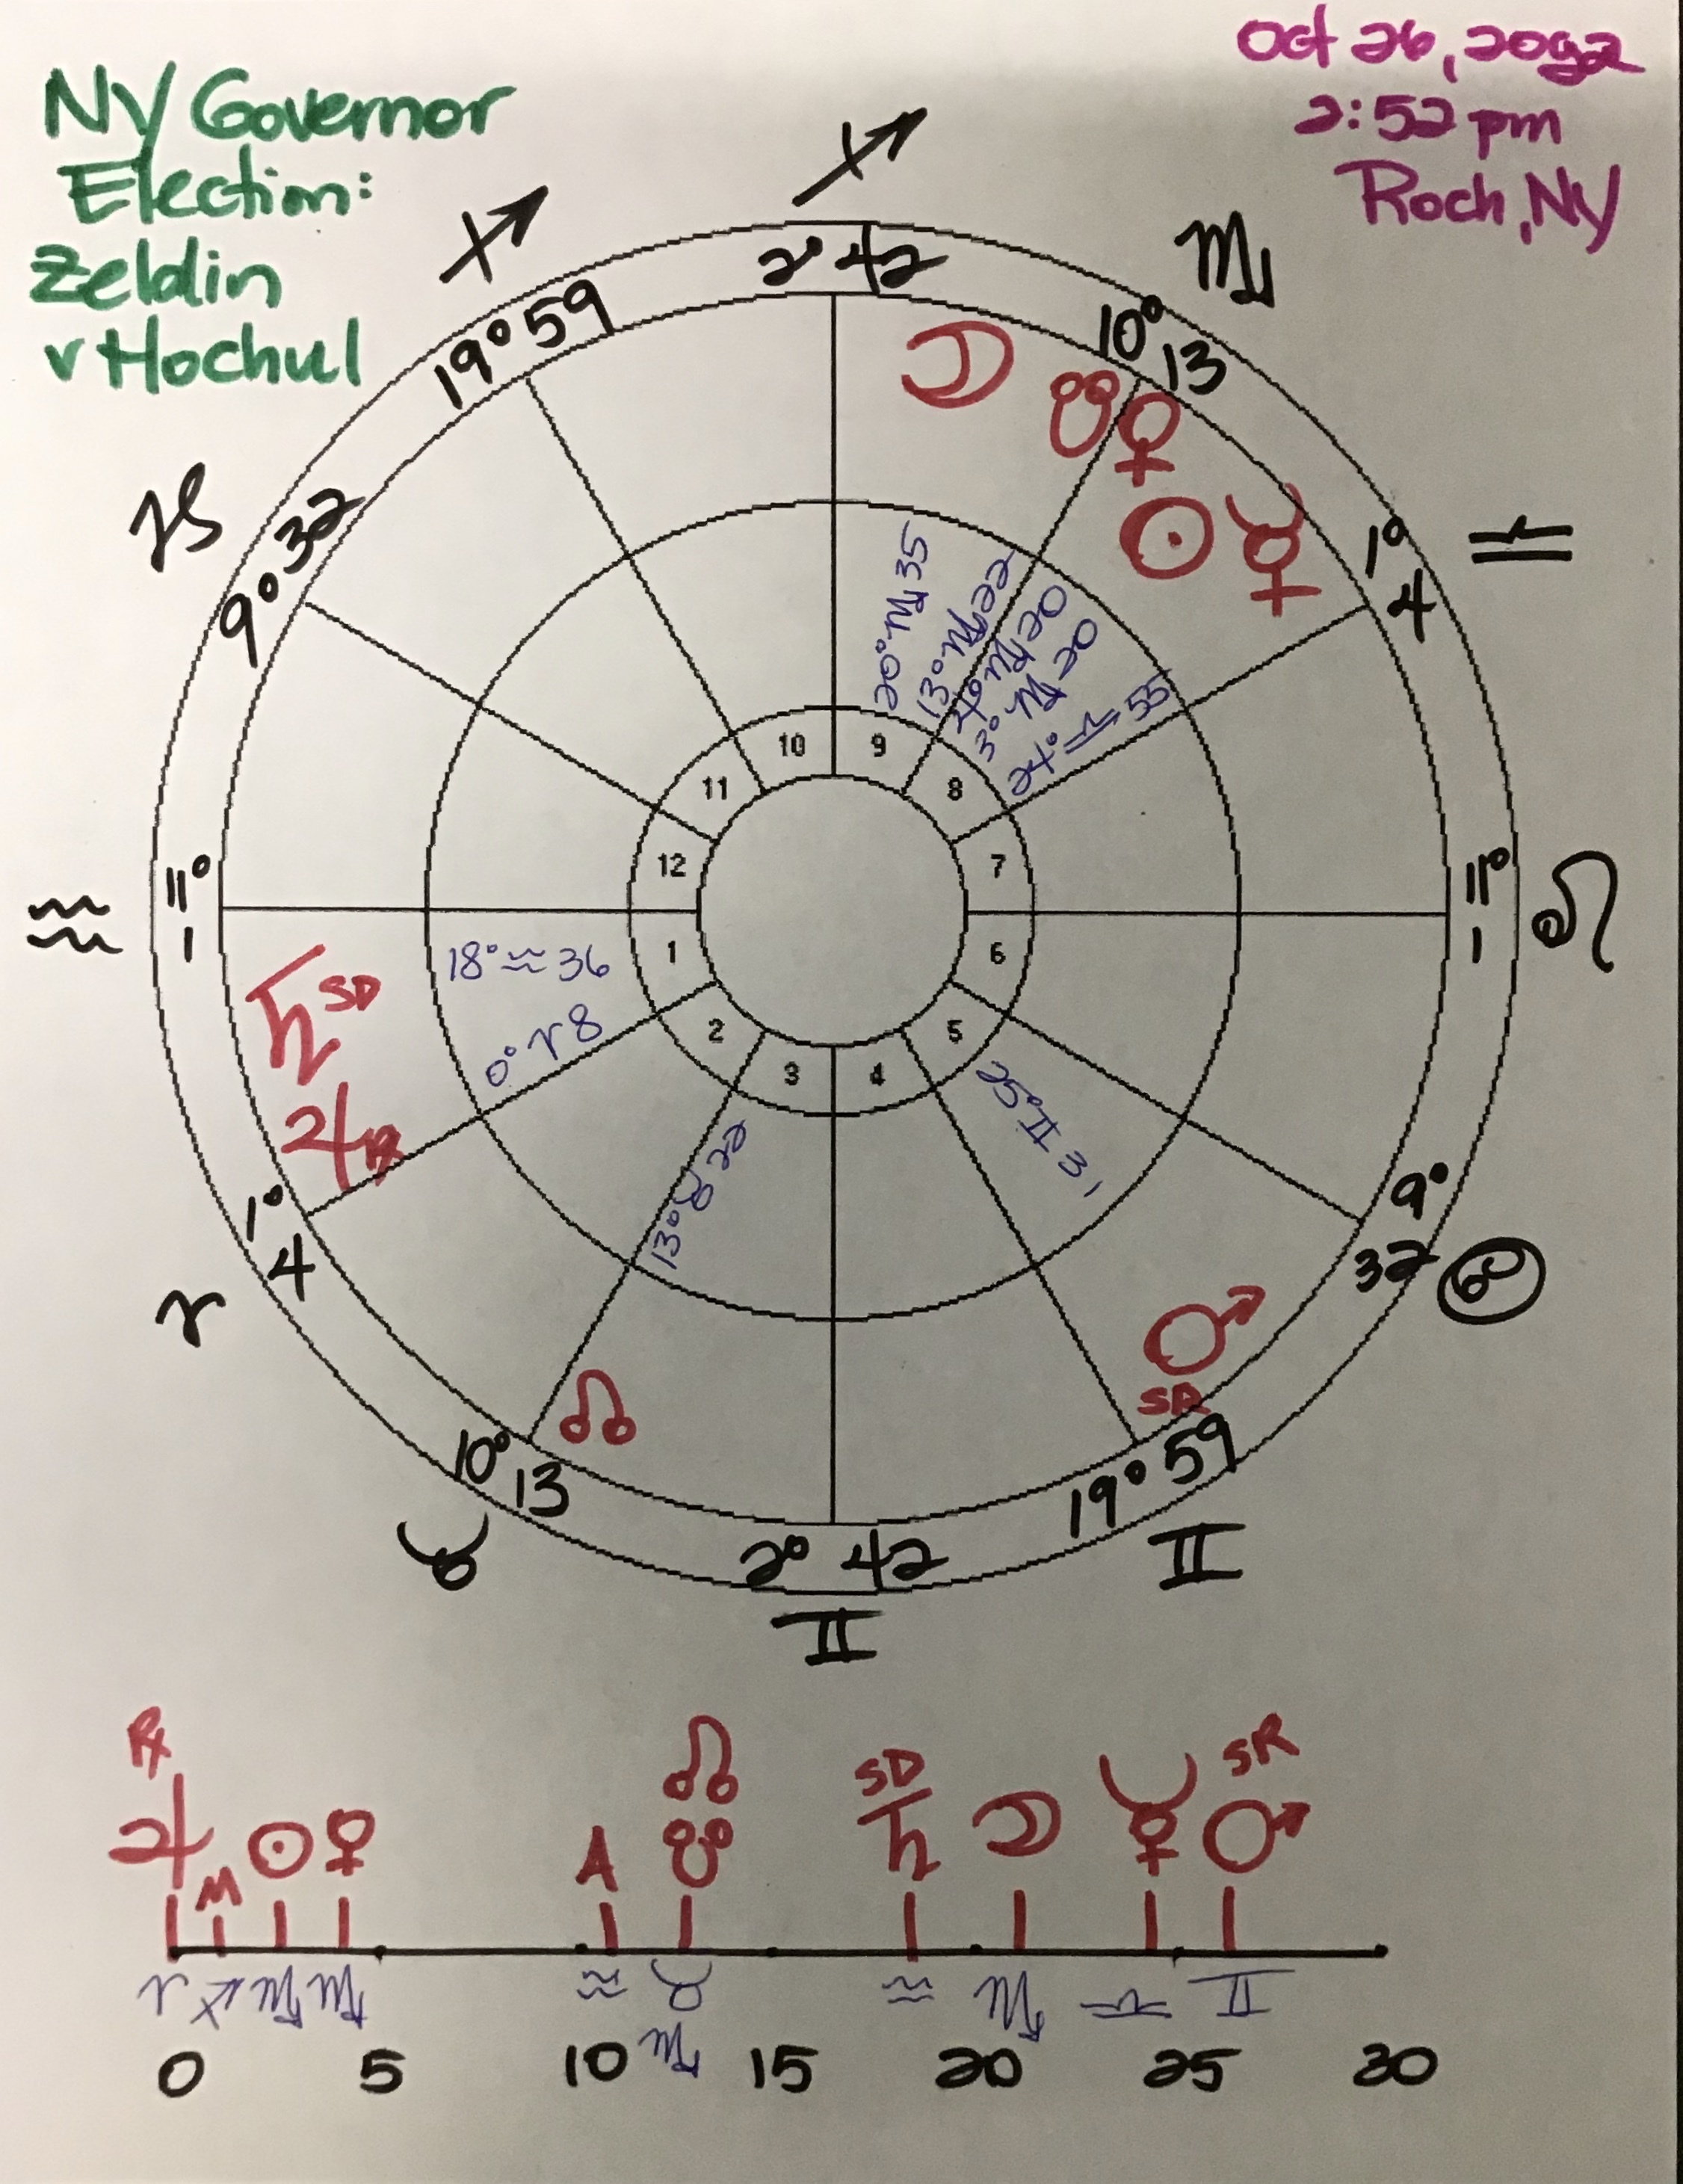 NY Governor
Election:
Zeldin
v Hochul
Oct 26, 2022
2:52 pm
Roch, NY
♐ ♐ ♏
2° 42
19° 59
10° 13
♑
9° 32
1° 4
♎
♒
11° 1
11° 1
♌
1° 4
♈
9° 32
♋
10° 13
♉
2° 42
♊
19° 59
♊
☽
☋ ♀
☉ ☿
♄ SD
♃ ℞
☊
♂
SR
20° ♏ 35
13° ♏ 22
4° ♏ 20
3° ♏ 20
24° ♎ 55
18° ♒ 36
0° ♈ 8
13° ♉ 22
25° ♊ 31
10 9
11 8
12 7
1 6
2 5
3 4
℞ ☊ SD SR
♃ M ☉ ♀ A ☋ ♄ ☽ ☿ ♂
♈ ♐ ♏ ♏ ♒ ♉ ♒ ♏ ♎ ♊
♏
0 5 10 15 20 25 30